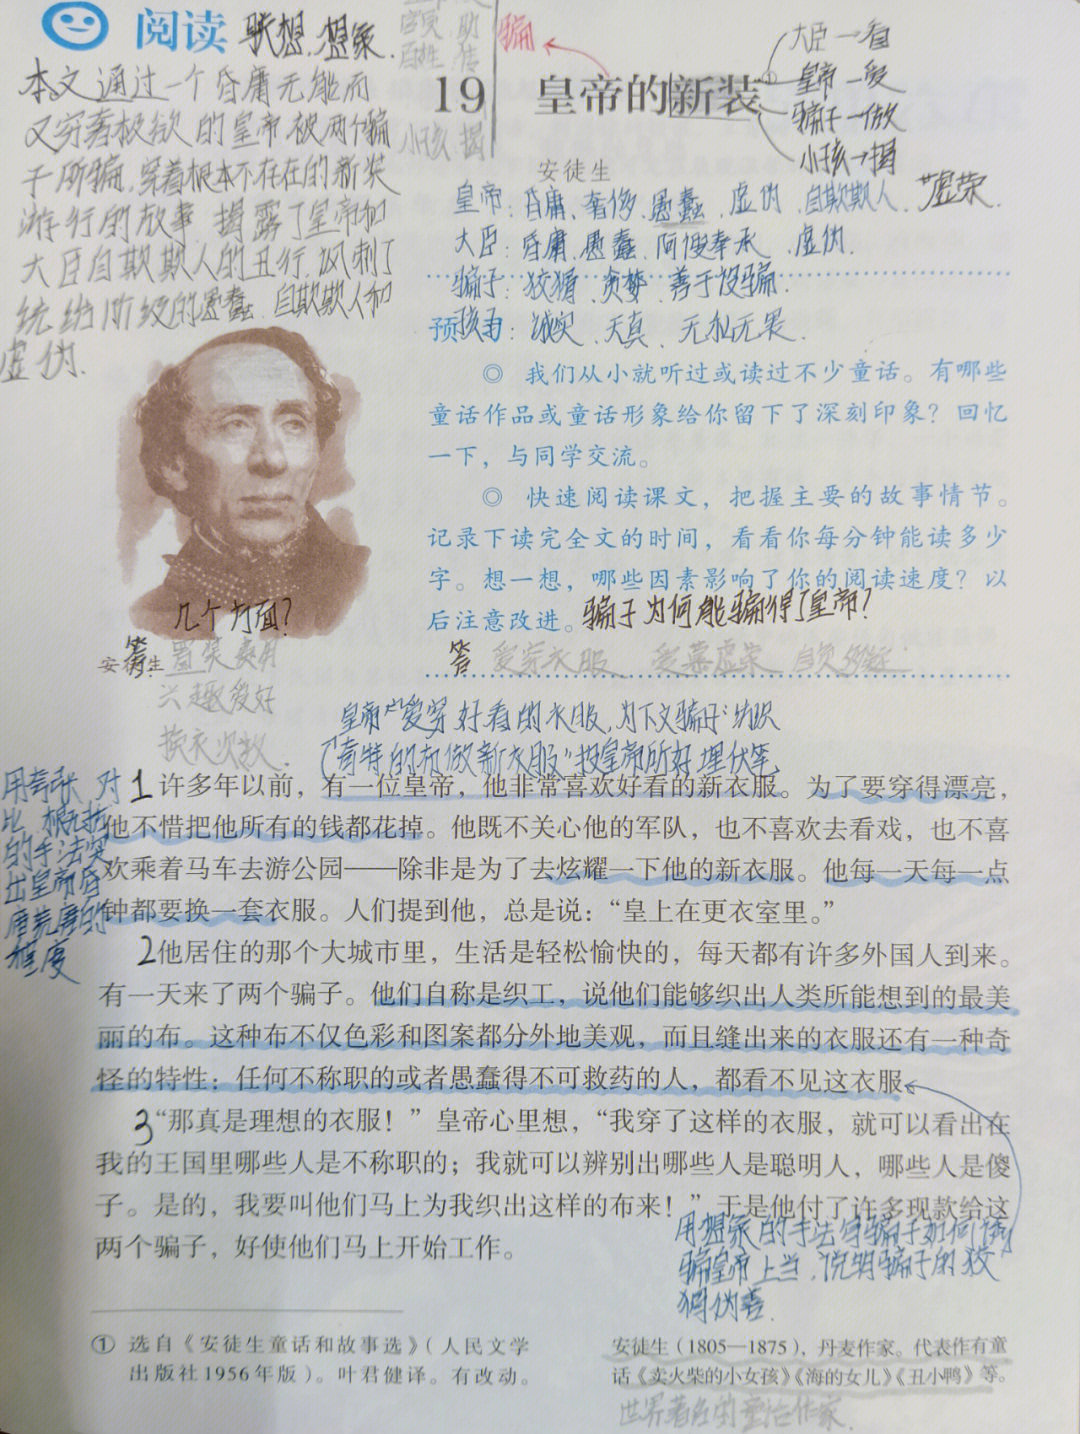 阅读 联想、想象
骗
19 皇帝的新装①
大臣一看
皇帝一爱
骗子一做
小孩→揭
小孩 揭
本文通过一个昏庸无能而
又穷奢极欲的皇帝被两个骗
子所骗,穿着根本不存在的新装
游行的故事,揭露了皇帝和
大臣自欺欺人的丑行,讽刺了
统治阶级的愚蠢、自欺欺人和
虚伪.
安徒生
皇帝:昏庸、奢侈、愚蠢、虚伪、自欺欺人、虚荣.
大臣:昏庸、愚蠢、阿谀奉承、虚伪.
骗子:狡猾、贪婪、善于设骗.
预 孩子:诚实、天真、无私无畏.
◎ 我们从小就听过或读过不少童话。有哪些
童话作品或童话形象给你留下了深刻印象?回忆
一下,与同学交流。
◎ 快速阅读课文,把握主要的故事情节。
记录下读完全文的时间,看看你每分钟能读多少
字。想一想,哪些因素影响了你的阅读速度?以
后注意改进。骗子为何能骗得了皇帝?
答 爱穿衣服 爱慕虚荣
几个方面?
安徒生
答
兴趣爱好
换衣次数
皇帝"爱穿好看的衣服,为下文骗子"纺织
"奇特的布做新衣服"投皇帝所好埋伏笔
用夸张、对
比、
的手法突
出皇帝昏
程度
1 许多年以前,有一位皇帝,他非常喜欢好看的新衣服。为了要穿得漂亮,
他不惜把他所有的钱都花掉。他既不关心他的军队,也不喜欢去看戏,也不喜
欢乘着马车去游公园——除非是为了去炫耀一下他的新衣服。他每一天每一点
钟都要换一套衣服。人们提到他,总是说:“皇上在更衣室里。”
2 他居住的那个大城市里,生活是轻松愉快的,每天都有许多外国人到来。
有一天来了两个骗子。他们自称是织工,说他们能够织出人类所能想到的最美
丽的布。这种布不仅色彩和图案都分外地美观,而且缝出来的衣服还有一种奇
怪的特性:任何不称职的或者愚蠢得不可救药的人,都看不见这衣服。
3 “那真是理想的衣服!”皇帝心里想,“我穿了这样的衣服,就可以看出在
我的王国里哪些人是不称职的;我就可以辨别出哪些人是聪明人,哪些人是傻
子。是的,我要叫他们马上为我织出这样的布来!”于是他付了许多现款给这
两个骗子,好使他们马上开始工作。
用想象的手法写骗子如何诱
骗皇帝上当,说明骗子的狡
猾伪善.
① 选自《安徒生童话和故事选》(人民文学
出版社1956年版)。叶君健译。有改动。
安徒生(1805—1875),丹麦作家。代表作有童
话《卖火柴的小女孩》《海的女儿》《丑小鸭》等。
世界著名的童话作家.